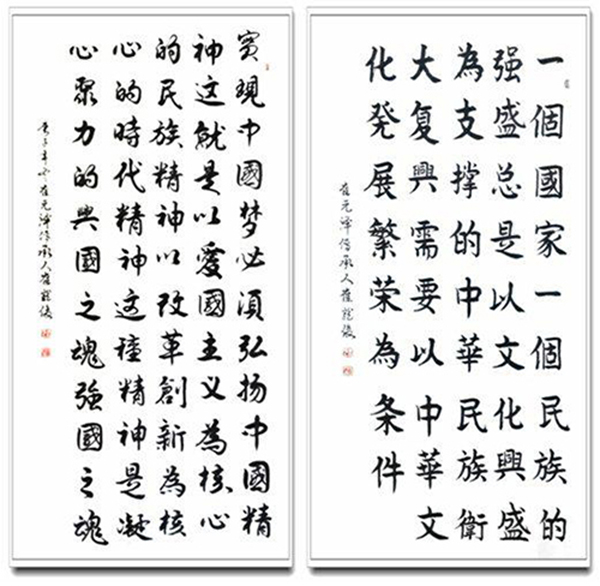 一個國家一個民族的
强盛总是以文化興盛
為支撑的中華民族衛
大复興需要以中華文
化発展繁荣為条件
元 传承人
實現中國梦必須弘扬中國精
神这就是以愛國主义為核心
的民族精神以改革創新為核
心的時代精神这種精神是凝
心聚力的興國之魂强國之魂
元 传承人